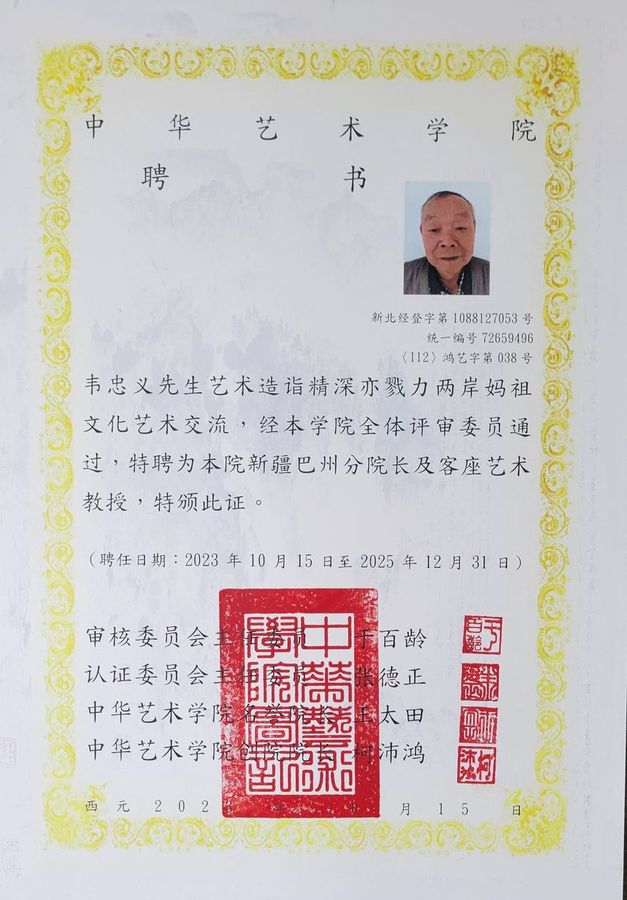 中华艺术学院
聘书
新北经登字第1088127053号
统一编号72659496
（112）鸿艺字第038号
韦忠义先生艺术造诣精深亦戮力两岸妈祖
文化艺术交流，经本学院全体评审委员通
过，特聘为本院新疆巴州分院长及客座艺术
教授，特颁此证。
（聘任日期：2023年10月15日至2025年12月31日）
审核委员会主任委员 于百龄
认证委员会主任委员 张德正
中华艺术学院名誉院长 王太田
中华艺术学院创院院长 柯沛鸿
西元202 年 月15日